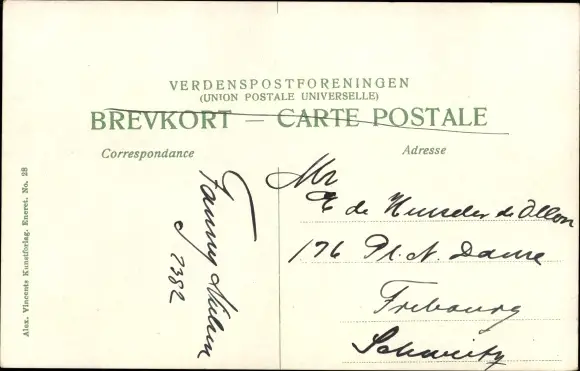 VERDENSPOSTFORENINGEN
(UNION POSTALE UNIVERSELLE)
BREVKORT — CARTE POSTALE
Correspondance
Adresse
Alex. Vincents Kunstforlag. Eneret. No. 28
Fanny
2382
Mr
de de
176 Pl. N. Dame
Fribourg
Schweitz